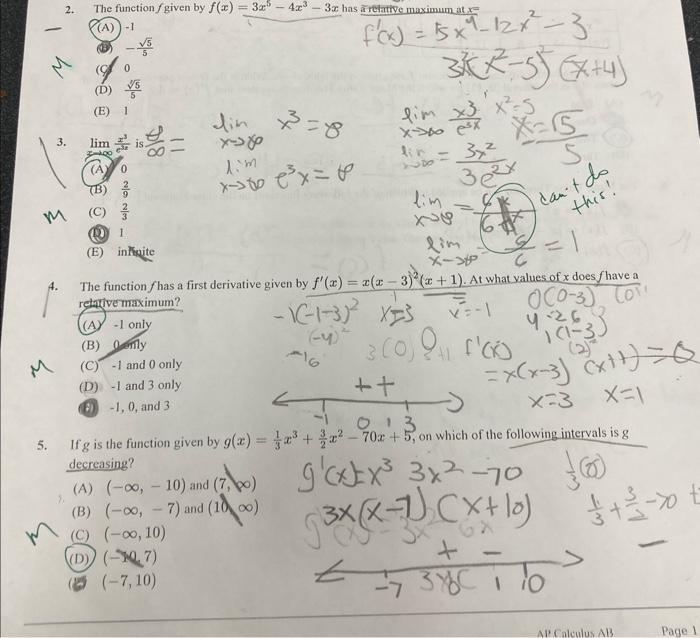 2. The function f given by f(x) = 3x⁵ − 4x³ − 3x has a relative maximum at x=
(A) -1
(B) −√5/5
(C) 0
(D) √5/5
(E) 1
M
f'(x) = 15x⁴ − 12x² − 3
(x+4)
x²−5
x = √5
5
3. lim x→∞ x³/e³ˣ is ∞/∞ =
(A) 0
(B) 2/9
(C) 2/3
(D) 1
(E) infinite
M
lim x→∞ x³ = ∞
lim x→∞ e³x = ∞
lim x→∞ x3/e³ˣ
lim x→∞ = 3x²/3e²x
lim x→∞ =
can't do this!
lim x→∞ 6/6 = 1
4. The function f has a first derivative given by f'(x) = x(x − 3)²(x + 1). At what values of x does f have a
relative maximum?
(A) -1 only
(B) 0 only
(C) -1 and 0 only
(D) -1 and 3 only
(E) -1, 0, and 3
M
-1(-1-3)² x=3 x=-1
(-4)²
-16
0(0-3)
1(1-3)
(2)²
f'(x)
= x(x-3) (x+1) = 0
x=3 x=1
+ +
-1 0 1 3
5. If g is the function given by g(x) = 1/3x³ + 3/2x² − 70x + 5, on which of the following intervals is g
decreasing?
(A) (−∞, − 10) and (7, ∞)
(B) (−∞, − 7) and (10, ∞)
(C) (−∞, 10)
(D) (−10, 7)
(E) (−7, 10)
M
g'(x)= x³ 3x² −70
3x(x−7) (x+10)
1/3 + 3/2 − 70
+ −
-7 1 10
AP Calculus AB Page 1